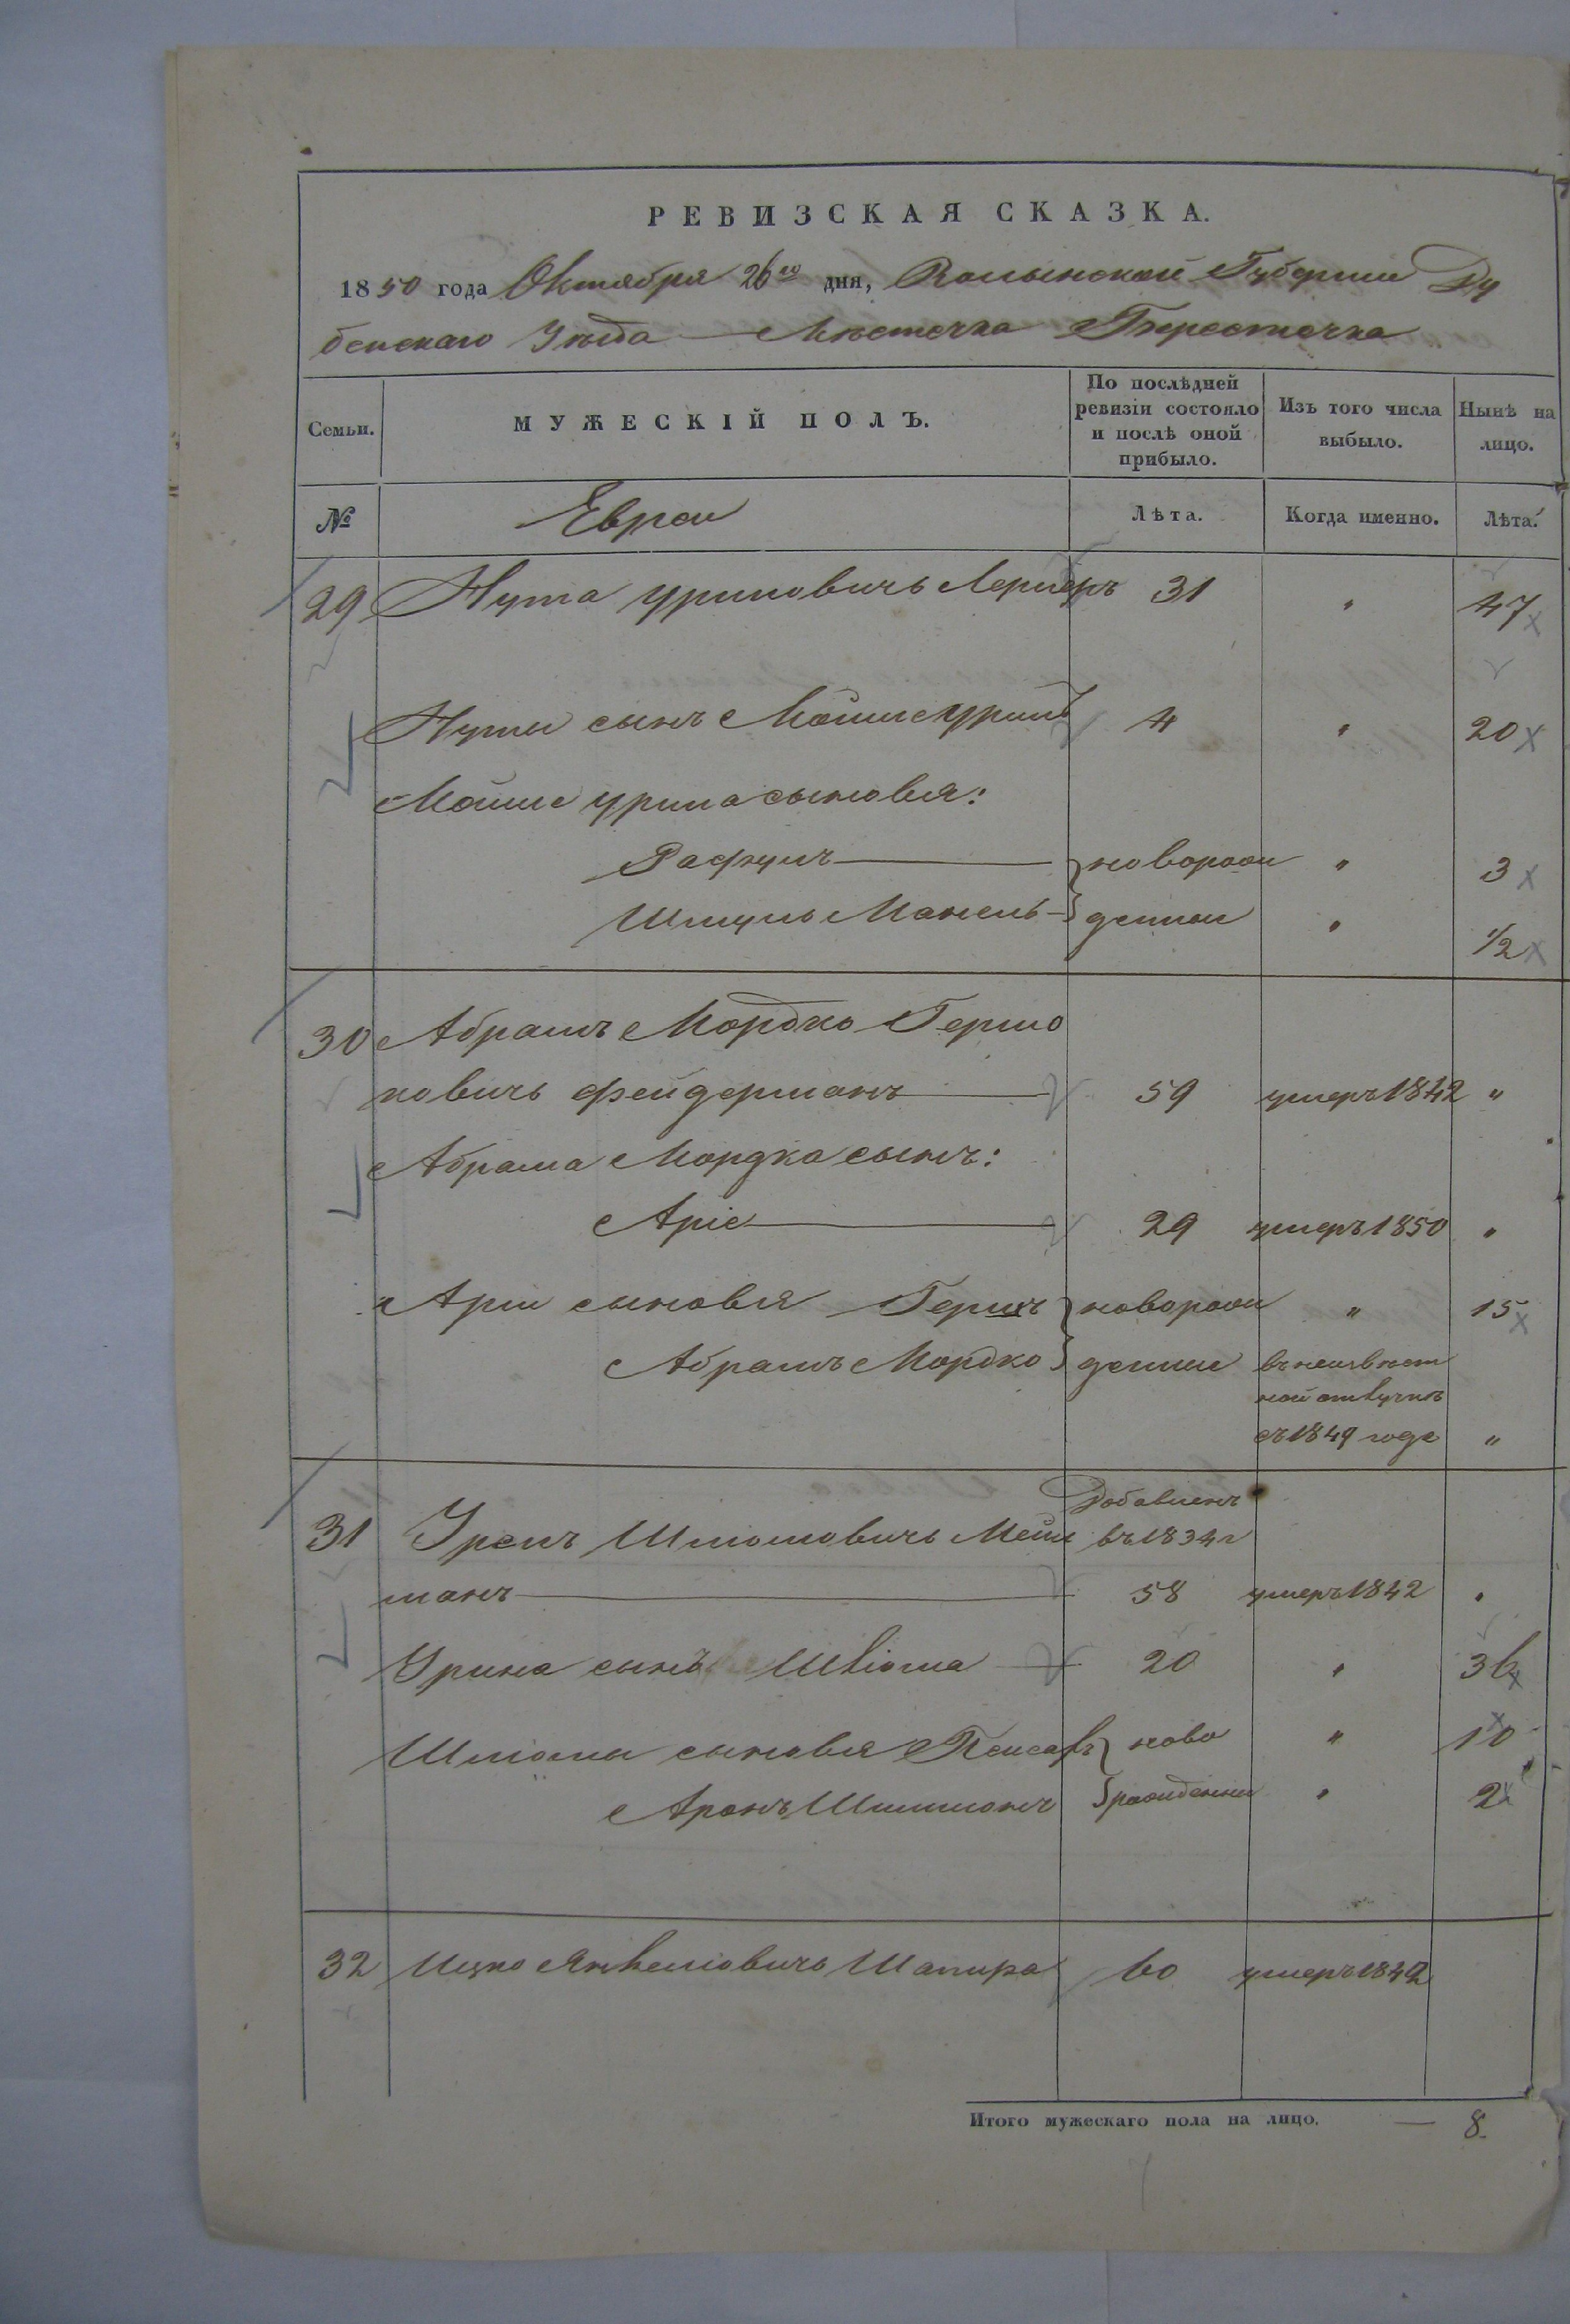 РЕВИЗСКАЯ СКАЗКА.
1850 года Октября 26го дня, Волынской Губернии Ду
бенскаго Уѣзда Мѣстечка Берестечка
Семьи.
МУЖЕСКІЙ ПОЛЪ.
По послѣдней ревизіи состояло и послѣ оной прибыло.
Изъ того числа выбыло.
Нынѣ на лицо.
№ Евреи Лѣта. Когда именно. Лѣта.
29 Нута Уриновичъ Лернеръ 31 " 47
Нуты сынъ Мойше Уринъ 4 " 20
Мойше Урина сыновья:
Рафулъ новорож " 3
Шмуль Манель денные " 1/2
30 Абрамъ Мордко Гершо
ковичъ Фейдерманъ 59 умеръ 1842 "
Абрама Мордка сынъ:
Аріе 29 умеръ 1850 "
Арія сыновья Гершъ новорож " 15
Абрамъ Мордко денные въ неизвѣст
ной отлучкѣ
съ 1849 года "
31 Добавленъ
Шлiомовичъ въ 1834 г
манъ 58 умеръ 1842 "
Урина сынъ Шліома 20 " 36
Шліомы сыновья Пейсахъ ново " 10
Аронъ Шлиомонъ рожденные " 2
32 Ицко Янкеліовичъ Шапира 60 умеръ 1842
Итого мужескаго пола на лицо. — 8